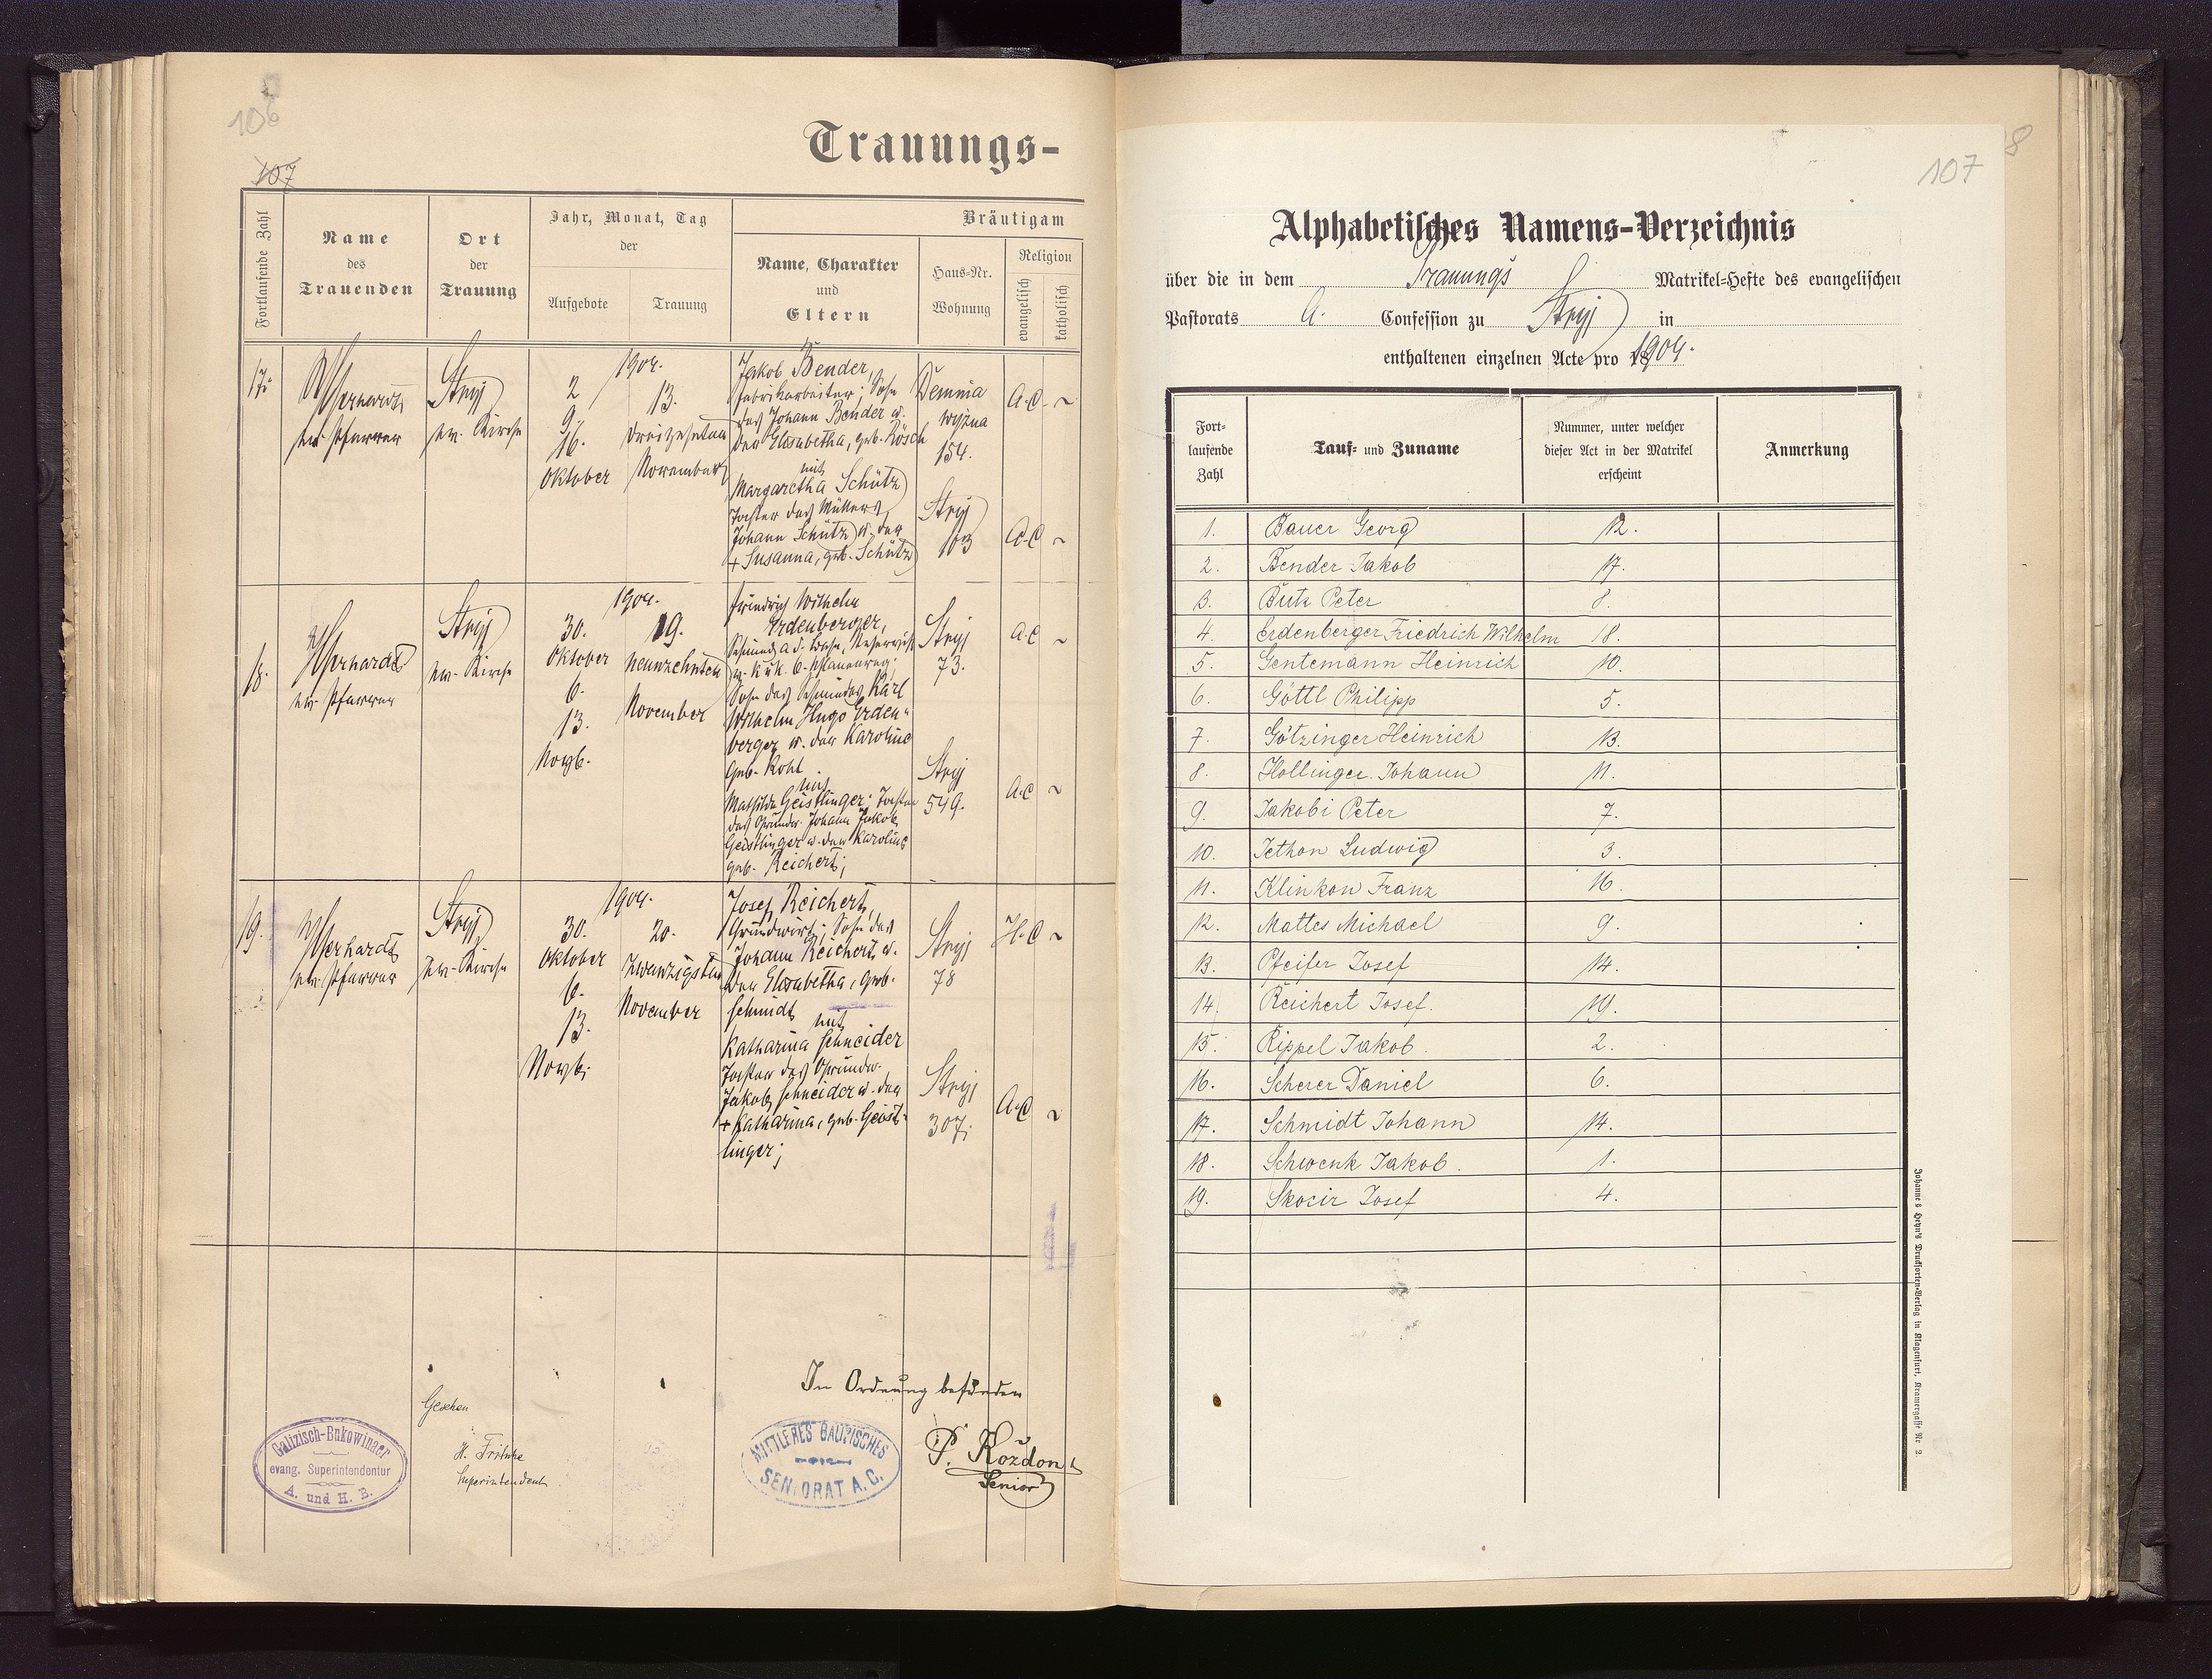 106
107
Trauungs-
Fortlaufende Zahl
Name
des
Trauenden
Ort
der
Trauung
Jahr, Monat, Tag
der
Aufgebote
Trauung
Bräutigam
Name, Charakter
und
Eltern
Haus-Nr.
Wohnung
Religion
evangelisch
katholisch
17.
ev. Pfarrer
Stryj
ev. Kirche
1904.
2
9.
16.
Oktober
13.
dreizehnten
November
Jakob Bender,
Fabrikarbeiter; Sohn
des Johann Bender u.
der Elisabetha, geb. Rösch
mit
Margaretha Schütz
Tochter des Müllers
Johann Schütz u. der
+ Susanna, geb. Schütz
Demnia
wyżna
154.
A.C. ~
Stryj
103
A.C ~
18.
ev. Pfarrer
Stryj
ev. Kirche
1904.
30.
Oktober
6.
13.
Novb.
19.
neunzehnten
November
Friedrich Wilhelm
Erdenberger,
Sohn des Schmiedes Karl
Wilhelm Hugo Erden-
berger u. der Karoline
geb. Kohl
mit
Mathilde Geistlinger; Tochter
des Grundw. Johann Jakob
Geistlinger u. der Karoline
geb. Reichert;
Stryj
73.
A.C ~
Stryj
549.
A.C ~
19.
ev. Pfarrer
Stryj
ev. Kirche
1904.
30.
Oktober
6.
13.
Novb.
20.
zwanzigsten
November
Josef Reichert,
Grundwirt; Sohn des
Johann Reichert u.
der Elisabetha, geb.
Schmidt
mit
Katharina Schneider
Tochter des Grundw.
Jakob Schneider u. der
+ Katharina, geb. Geist-
linger;
Stryj
78
H.C ~
Stryj
307.
A.C ~
In Ordnung befunden
P. Kozdon
Senior
Gesehen
H. Fritsche
Superintendent
Galizisch-Bukowinaer
evang. Superintendentur
A. und H. B.
MITTLERES GALIZISCHES
SENIORAT A. C.
8
107
Alphabetisches Namens-Verzeichnis
über die in dem Trauungs Matrikel-Hefte des evangelischen
Pastorats A. Confession zu Stryj in
enthaltenen einzelnen Acte pro 1904.
Fort-
laufende
Zahl
Tauf- und Zuname
Nummer, unter welcher
dieser Act in der Matrikel
erscheint
Anmerkung
1. Bauer Georg 12.
2. Bender Jakob 17.
3. Butz Peter 8.
4. Erdenberger Friedrich Wilhelm 18.
5. Gentemann Heinrich 10.
6. Göttl Philipp 5.
7. Götzinger Heinrich 13.
8. Hollinger Johann 11.
9. Jakobi Peter 7.
10. Jethon Ludwig 3.
11. Klinkon Franz 16.
12. Mattes Michael 9.
13. Pfeifer Josef 14.
14. Reichert Josef. 19.
15. Rippel Jakob. 2.
16. Scherer Daniel 6.
17. Schmidt Johann 14.
18. Schwenk Jakob. 1.
19. Skocir Josef 4.
Johannes Heyn's Drucksorten-Verlag in Klagenfurt, Kramergasse Nr. 2